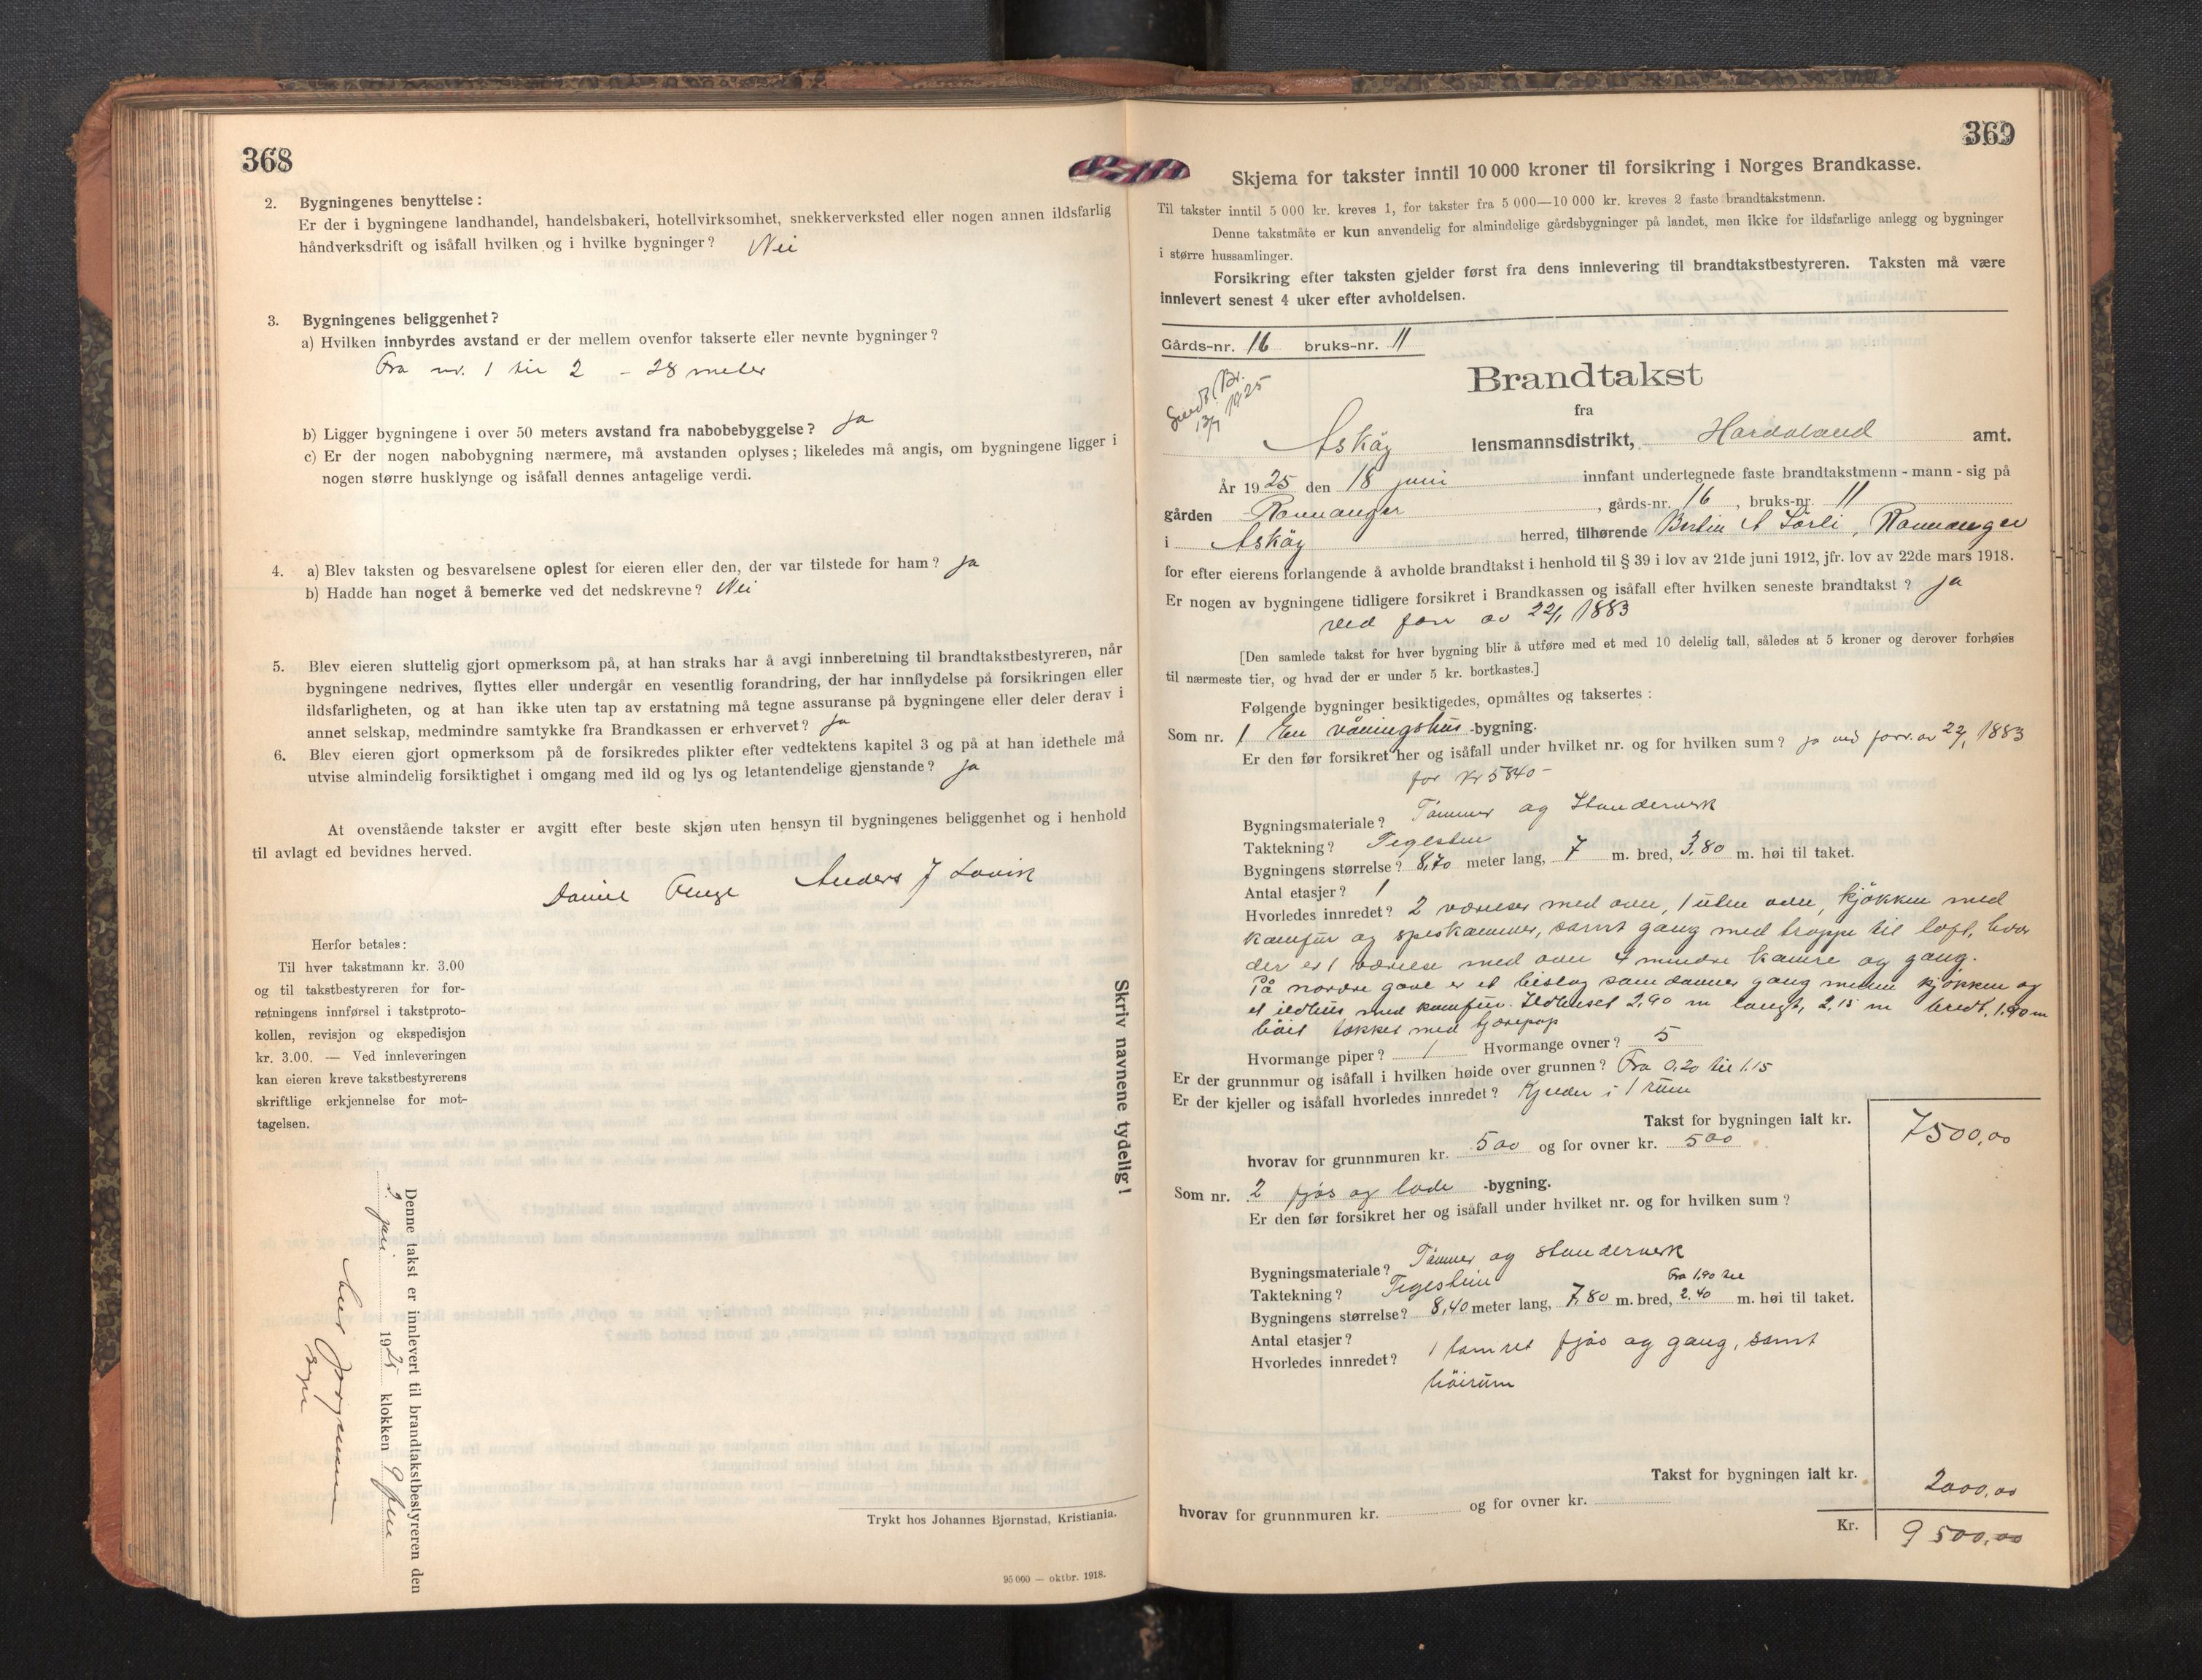 368
2. Bygningenes benyttelse:
Er der i bygningene landhandel, handelsbakeri, hotellvirksomhet, snekkerverksted eller nogen annen ildsfarlig
håndverksdrift og isåfall hvilken og i hvilke bygninger? Nei
3. Bygningenes beliggenhet?
a) Hvilken innbyrdes avstand er der mellem ovenfor takserte eller nevnte bygninger?
Fra nr. 1 til 2 - 28 meter
b) Ligger bygningene i over 50 meters avstand fra nabobebyggelse? ja
c) Er der nogen nabobygning nærmere, må avstanden oplyses; likeledes må angis, om bygningene ligger i
nogen større husklynge og isåfall dennes antagelige verdi.
4. a) Blev taksten og besvarelsene oplest for eieren eller den, der var tilstede for ham? ja
b) Hadde han noget å bemerke ved det nedskrevne? Nei
5. Blev eieren sluttelig gjort opmerksom på, at han straks har å avgi innberetning til brandtakstbestyreren, når
bygningene nedrives, flyttes eller undergår en vesentlig forandring, der har innflydelse på forsikringen eller
ildsfarligheten, og at han ikke uten tap av erstatning må tegne assuranse på bygningene eller deler derav i
annet selskap, medmindre samtykke fra Brandkassen er erhvervet? ja
6. Blev eieren gjort opmerksom på de forsikredes plikter efter vedtektens kapitel 3 og på at han idethele må
utvise almindelig forsiktighet i omgang med ild og lys og letantendelige gjenstande? ja
At ovenstående takster er avgitt efter beste skjøn uten hensyn til bygningenes beliggenhet og i henhold
til avlagt ed bevidnes herved.
Daniel Anders J Lovik
Herfor betales:
Til hver takstmann kr. 3.00
og til takstbestyreren for for-
retningens innførsel i takstproto-
kollen, revisjon og ekspedisjon
kr. 3.00. — Ved innleveringen
kan eieren kreve takstbestyrerens
skriftlige erkjennelse for mot-
tagelsen.
Skriv navnene tydelig!
Denne takst er innlevert til brandtakstbestyreren den
3 1925 klokken 9
Trykt hos Johannes Bjørnstad, Kristiania.
95 000 — oktbr. 1918.
369
Skjema for takster inntil 10 000 kroner til forsikring i Norges Brandkasse.
Til takster inntil 5 000 kr. kreves 1, for takster fra 5 000—10 000 kr. kreves 2 faste brandtakstmenn.
Denne takstmåte er kun anvendelig for almindelige gårdsbygninger på landet, men ikke for ildsfarlige anlegg og bygninger
i større hussamlinger.
Forsikring efter taksten gjelder først fra dens innlevering til brandtakstbestyreren. Taksten må være
innlevert senest 4 uker efter avholdelsen.
Gårds-nr. 16 bruks-nr. 11
Sendt Br.
13/7 1925
Brandtakst
fra
Asköy lensmannsdistrikt, Hordaland amt.
År 1925 den 18 juni innfant undertegnede faste brandtakstmenn - mann - sig på
gården Ramnanger, gårds-nr. 16, bruks-nr. 11
i Asköy herred, tilhørende A Sörli, Ramnanger
for efter eierens forlangende å avholde brandtakst i henhold til § 39 i lov av 21de juni 1912, jfr. lov av 22de mars 1918.
Er nogen av bygningene tidligere forsikret i Brandkassen og isåfall efter hvilken seneste brandtakst? ja
ved forr av 22/1 1883
[Den samlede takst for hver bygning blir å utføre med et med 10 delelig tall, således at 5 kroner og derover forhøies
til nærmeste tier, og hvad der er under 5 kr. bortkastes.]
Følgende bygninger besiktigedes, opmåltes og taksertes:
Som nr. 1 En våningshus -bygning.
Er den før forsikret her og isåfall under hvilket nr. og for hvilken sum? ja ved forr. av 22/1 1883
for kr 5840-
Bygningsmateriale? Tömmer og Standerverk
Taktekning? Teglsten
Bygningens størrelse? 8,70 meter lang, 7 m. bred, 3,80 m. høi til taket.
Antal etasjer? 1
Hvorledes innredet? 2 værelser med ovn, 1 uten ovn, kjökken med
komfur og spiskammer, samt gang med trappe til loft, hvor
der er 1 værelse med ovn 4 mindre kamre og gang.
På nordre gavl er et bislag som danner gang mellem kjökken og
et ildhus med komfur. Ildhuset 2,90 m langt, 2,15 m bredt, 1,90 m
höit tækket med tjærepap
Hvormange piper? 1 Hvormange ovner? 5
Er der grunnmur og isåfall i hvilken høide over grunnen? Fra 0,20 til 1.15
Er der kjeller og isåfall hvorledes innredet? Kjelder i 1 rum
Takst for bygningen ialt kr. 7500,00
hvorav for grunnmuren kr. 500 og for ovner kr. 500
Som nr. 2 fjös og lade -bygning.
Er den før forsikret her og isåfall under hvilket nr. og for hvilken sum?
Bygningsmateriale? Tömmer og standerverk
Taktekning? Teglsten
Fra 1,90 til
Bygningens størrelse? 8,40 meter lang, 7,80 m. bred, 2,40 m. høi til taket.
Antal etasjer?
Hvorledes innredet? 1 tömret fjös og gang, samt
höirum
Takst for bygningen ialt kr. 2000,00
hvorav for grunnmuren kr. og for ovner kr.
Kr. 9500,00